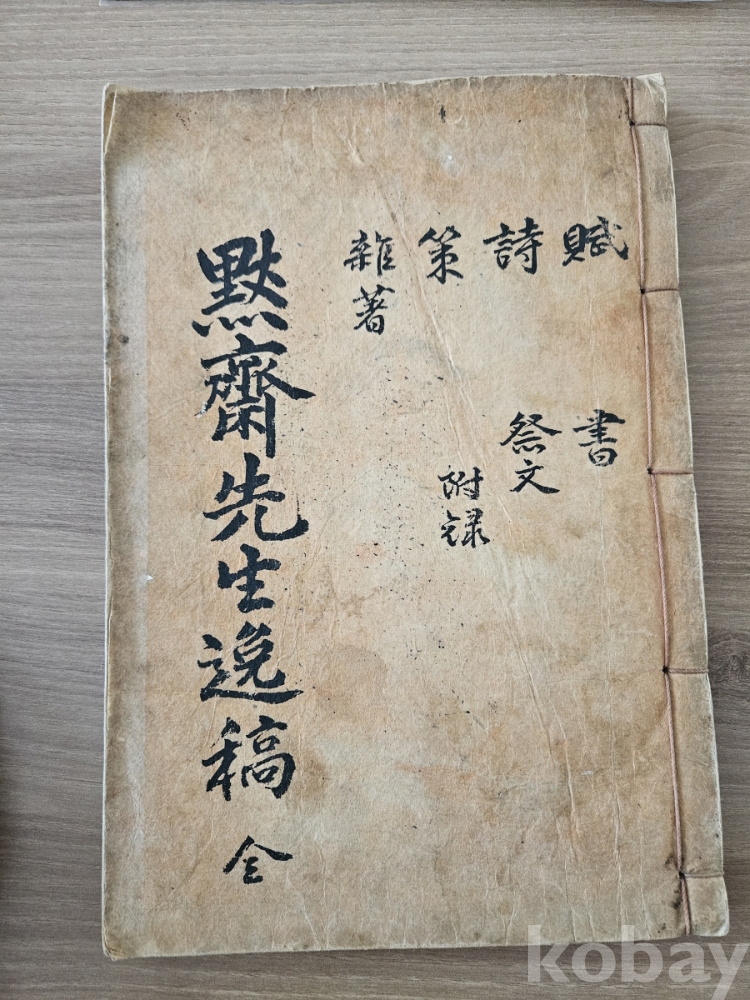 賦
詩
策
雜著
書
祭文
附錄
默齋先生逸稿 全
kobay